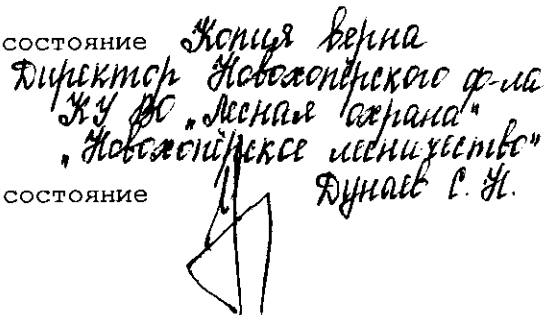 состояние Копия верна
Директор Новохопёрского ф-ла
КУ ВО „Лесная охрана“
„Новохопёрское лесничество“
состояние Дунаев С. Н.